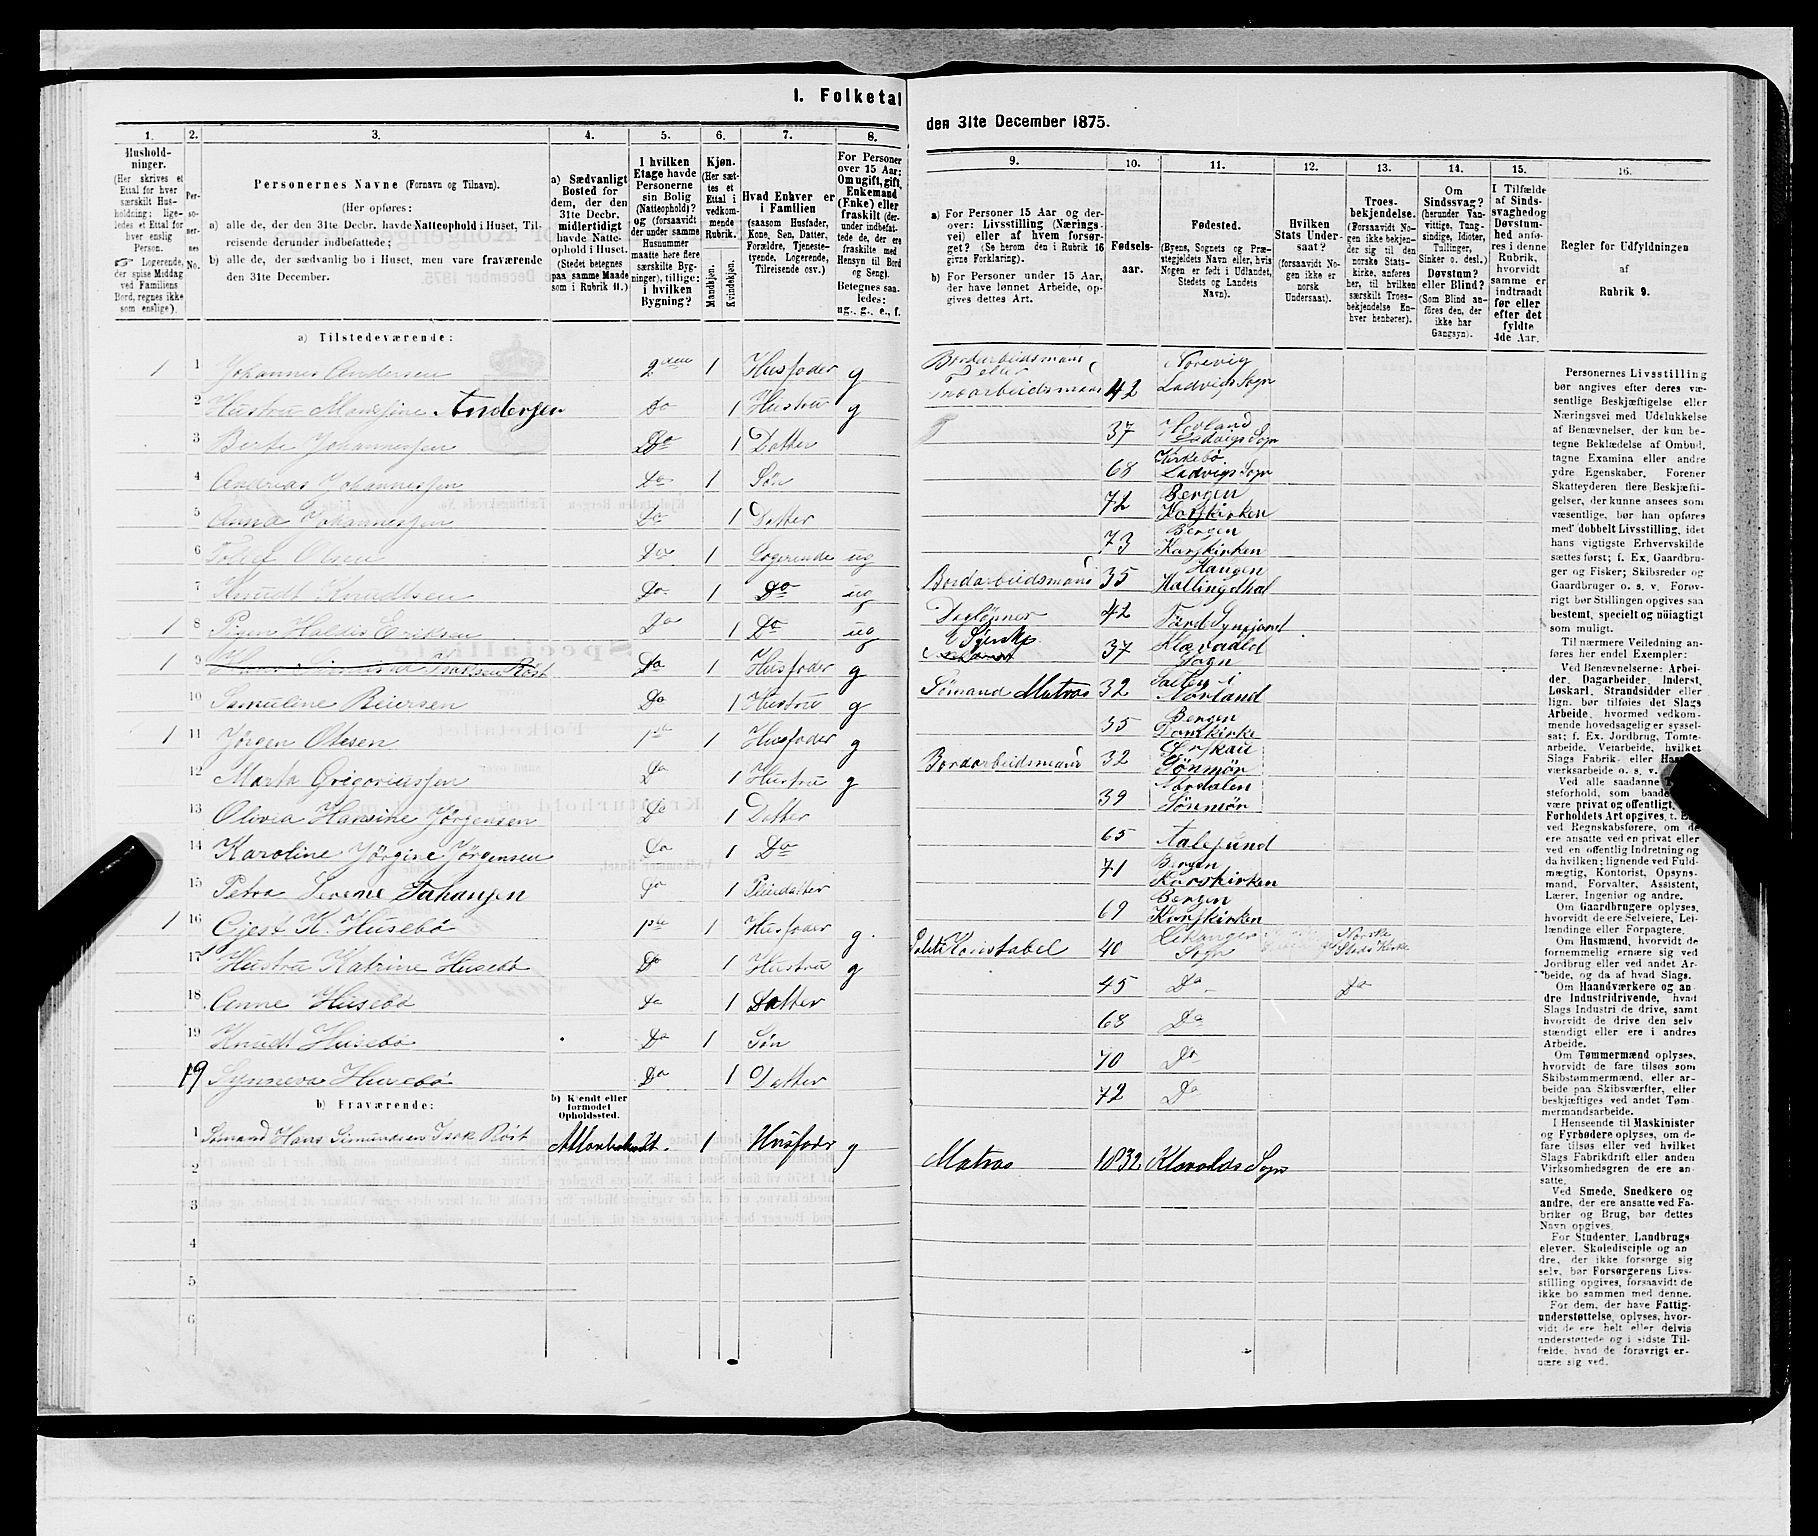 I. Folketal
den 31te December 1875.
1. 2. 3. 4. 5. 6. 7. 8.
9. 10. 11. 12. 13. 14. 15. 16.
Hushold-
ninger.
(Her skrives et
Ettal for hver
særskilt Hus-
holdning; lige-
ledes et Ettal for
hver enslig
Person.
☞ Logerende,
der spise Middag
ved Familiens
Bord, regnes ikke
som enslige).
Per-
so-
ner-
nes
No.
Personernes Navne (Fornavn og Tilnavn).
(Her opføres:
a) alle de, der den 31te Decbr. havde Natteophold i Huset, Til-
reisende derunder indbefattede;
b) alle de, der sædvanlig bo i Huset, men vare fraværende
den 31te December.
a) Sædvanligt
Bosted for
dem, der den
31te Decbr.
midlertidigt
havde Natte-
ophold i Huset.
(Stedet betegnes
paa samme Maade
som i Rubrik 11.)
I hvilken
Etage havde
Personerne
sin Bolig
(Natteophold)?
og (forsaavidt
der under samme
Husnummer
maatte høre flere
særskilte Byg-
ninger), tillige:
i hvilken
Bygning?
Kjøn.
(Her sæt-
tes et
Ettal i
vedkom-
mende
Rubrik.
Mandkjøn.
Kvindekjøn.
Hvad Enhver er
i Familien
(saasom Husfader,
Kone, Søn, Datter,
Forældre, Tjeneste-
tyende, Logerende,
Tilreisende osv.)
For Personer
over 15 Aar:
Om ugift, gift,
Enkemand
(Enke) eller
fraskilt (der-
under indbefat-
tede de, der ere
fraskilte med
Hensyn til Bord
og Seng).
Betegnes saa-
ledes:
ug., g., e., f.
a) For Personer 15 Aar og der-
over: Livsstilling (Nærings-
vei) eller af hvem forsør-
get? (Se herom den i Rubrik 16
givne Forklaring).
b) For Personer under 15 Aar,
der have lønnet Arbeide, op-
gives dettes Art.
Fødsels-
aar.
Fødested.
(Byens, Sognets og Præ-
stegjeldets Navn eller, hvis
Nogen er født i Udlandet,
Stedets og Landets
Navn).
Hvilken
Stats Under-
saat?
(forsaavidt No-
gen ikke er
norsk
Undersaat).
Troes-
bekjendelse.
(Forsaavidt No-
gen ikke bekjen-
der sig til den
norske Stats-
kirke, anføres
her, til hvilken
særskilt Troes-
bekjendelse En-
hver henhører).
Om
Sindssvag?
(herunder Van-
vittige, Tung-
sindige, Idioter,
Tullinger,
Sinker o. desl.)
Døvstum?
eller Blind?
(Som Blind an-
føres den, der
ikke har
Gangsyn).
I Tilfælde
af Sinds-
svaghed og
Døvstum-
hed anfø-
res i denne
Rubrik,
hvorvidt
samme er
indtraadt
før eller
efter det
fyldte
4de Aar.
Regler for Udfyldningen
af
Rubrik 9.
a) Tilstedeværende:
1 1 Johannes Andersen 2den 1 Husfader g Bordarbeidsmand 42 Norevig Ladvigs Sogn
2 Hustru Andersen Do 1 Hustru g 37 Hovland Ladvigs Sogn
3 Berte Johannessen Do 1 Datter 68 Kirkebø Ladvigs Sogn
4 Andreas Johannessen Do 1 Søn 72 Bergen Korskirken
5 Anna Johannessen Do 1 Datter 73 Bergen Korskirken
6 Olsen Do 1 Logerende ug Bordarbeidsmand 35 Haugen Hallingdal
7 Knudt Knudtsen Do 1 Do ug Daglønner 42
1 8 Pigen Haldis Eriksen Do 1 Do ug 37 Sogn
1 9 Do 1 Husfader g Sømand Matros 32 Salten i Norland
10 Samuline Reiersen Do 1 Hustru g 35 Bergen Domkirke
1 11 Jørgen Olsen 1ste 1 Husfader g Bordarbeidsmand 32 Sønmør
12 Marta Gregoriussen Do 1 Hustru g 39 Nordalen Sønmør
13 Olivia Hansine Jørgensen Do 1 Datter 65 Aalesund
14 Karoline Jørgine Jørgensen Do 1 Do 71 Bergen Korskirken
15 Petra Severine Johansen Do 1 Pleiedatter 69 Bergen Korskirken
1 16 Gjest K. Husebø 1ste 1 Husfader g. Politi Konstabel 40 Leikanger Sogn Norske Stats Kirke
17 Hustru Katrine Husebø Do 1 Hustru g 45 Do Do
18 Anne Husebø Do 1 Datter 68 Do
19 Knudt Husebø Do 1 Søn 70 Do
19 Synneva Husebø Do 1 Datter 72 Do
b) Fraværende:
b) Kjendt eller
formodet
Opholdssted.
1 Sømand Hans Simundsen Isak Røst 1 Husfader g Matros 1832 Sogn
2
3
4
5
6
Personernes Livsstilling
bør angives efter deres væ-
sentlige Beskjæftigelse eller
Næringsvei med Udelukkelse
af Benævnelser, der kun be-
tegne Beklædelse af Ombud,
tagne Examina eller andre
ydre Egenskaber. Forener
Skatteyderen flere Beskjæfti-
gelser, der kunne ansees som
væsentlige, bør han opføres
med dobbelt Livsstilling, idet
hans vigtigste Erhvervskilde
sættes først; f. Ex. Gaardbru-
ger og Fisker; Skibsreder og
Gaardbruger o. s. v. Forøv-
rigt bør Stillingen opgives saa
bestemt, specielt og nøiagtigt
som muligt.
Til nærmere Veiledning an-
føres her endel Exempler:
Ved Benævnelserne: Arbei-
der, Dagarbeider, Inderst,
Løskarl, Strandsidder eller
lign. bør tilføies det Slags
Arbeide, hvormed vedkom-
mende hovedsagelig er syssel-
sat; f. Ex. Jordbrug, Tomte-
arbeide, Veiarbeide, hvilket
Slags Fabrik- eller
værksarbeide o. s. v.
Ved alle saadanne
steforhold, som baade
være privat og offentligt,
Forholdets Art opgives, t. Ex.
ved Regnskabsførere, om de
ere ansatte ved en privat eller
ved en offentlig Indretning og
da hvilken; lignende ved Fuld-
mægtig, Kontorist, Opsyns-
mand, Forvalter, Assistent,
Lærer, Ingeniør og andre.
Om Gaardbrugere oplyses,
hvorvidt de ere Selveiere, Lei-
lændinge eller Forpagtere.
Om Husmænd, hvorvidt de
fornemmelig ernære sig ved
Jordbrug eller ved andet Ar-
beide, og da af hvad Slags.
Om Haandværkere og an-
dre Industridrivende, hvad
Slags Industri de drive, samt
hvorvidt de drive den selv-
stændigt eller ere i andres
Arbeide.
Om Tømmermænd oplyses,
hvorvidt de fare tilsøs som
Skibstømmermænd, eller ar-
beide paa Skibsværfter, eller
beskjæftiges ved andet Tøm-
mermandsarbeide.
I Henseende til Maskinister
og Fyrbødere oplyses, om de
fare tilsøs eller ved hvilket
Slags Fabrikdrift eller anden
Virksomhedsgren de ere an-
satte.
Ved Smede, Snedkere og
andre, der ere ansatte ved Fa-
briker og Brug, bør dettes
Navn opgives.
For Studenter, Landbrugs-
elever, Skoledisciple og an-
dre, der ikke forsørge sig
selv, bør Forsørgerens Livs-
stilling opgives, forsaavidt de
ikke bo sammen med denne.
For dem, der have Fattig-
understøttelse, oplyses, hvor-
vidt de ere helt eller delvis
understøttede og i sidste Til-
fælde, hvad de forøvrigt er-
nære sig ved.